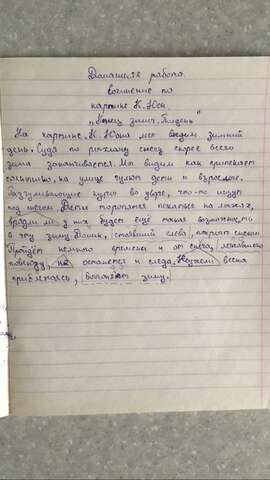 Домашняя работа
сочинение по
картине К. Юон.
„Конец зимы. Полдень"
На картине К. Юона мы видим зимний
день. Судя по рыхлому снегу скорее всего
зима заканчивается. Мы видим как припекает
солнышко, на улице гуляют дети и взрослые,
Разгуливающие куры во дворе, что-то ищут
под снегом. Дети торопятся покататься на лыжах,
врядли у них будет ещё такая возможность
в эту зиму. Домик, стоявший слева, покрыт снегом.
Пройдёт немного времени и от снега, лежавшего
повсюду, не останется и следа. весна
приближаясь, зиму.